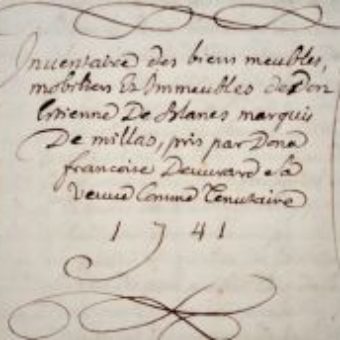 Inventaire des biens meubles,
mobiliers Et Immeubles de Don
Estienne De Blanes marquis
De millas, pris par Dona
francoise
veuve Comme Tenutaire
1741